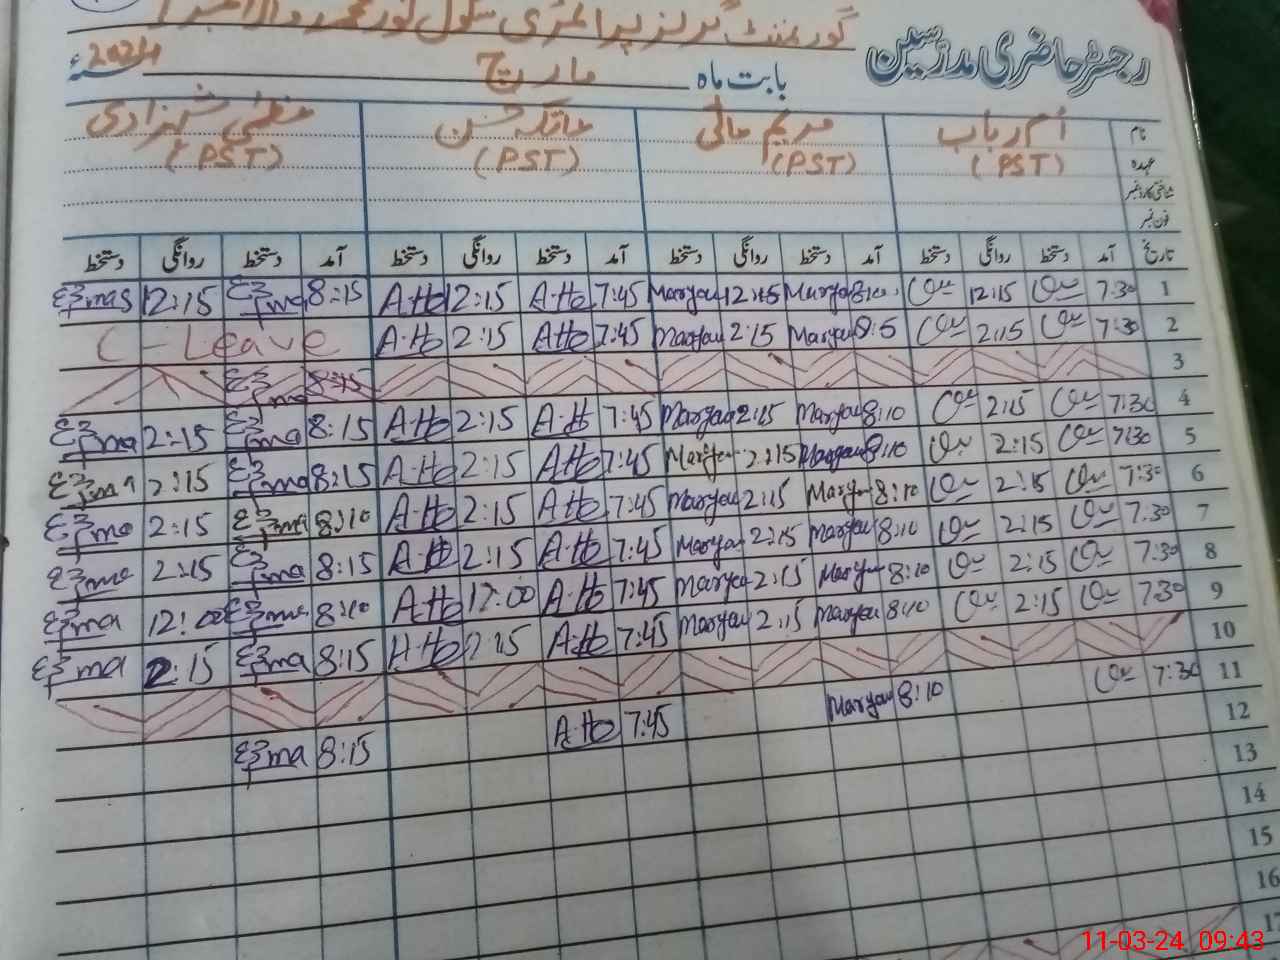 گورنمنٹ گرلز پرائمری سکول نور محمد
رجسٹر حاضری مدرسین بابت ماہ مارچ سنہ 2024ء
نام ام رباب مریم عاتکہ حسن عظمیٰ شہزادی
عہدہ (PST) (PST) (PST) (PST)
شناختی کارڈ نمبر
فون نمبر
تاریخ آمد دستخط روانگی دستخط آمد دستخط روانگی دستخط آمد دستخط روانگی دستخط آمد دستخط روانگی دستخط
1 7:30 12:15 8:10 Maryam 12:15 Maryam 7:45 A.Ho 12:15 A.Ho 8:15 12:15
2 7:30 2:15 Maryam 2:15 Maryam 7:45 A.Ho 2:15 A.Ho C-Leave
3
4 7:30 2:15 8:10 Maryam 2:15 Maryam 7:45 A.H 2:15 A.Ho 8:15 2:15
5 7:30 2:15 8:10 Maryam 2:15 Maryam 7:45 A.Ho 2:15 A.Ho 8:15 2:15
6 7:30 2:15 8:10 Maryam 2:15 Maryam 7:45 A.Ho 2:15 A.Ho 8:10 2:15
7 7:30 2:15 8:10 Maryam 2:15 Maryam 7:45 A.Ho 2:15 A.Ho 8:15 2:15
8 7:30 2:15 8:10 Maryam 2:15 Maryam 7:45 A.Ho 12:00 A.Ho 8:10 12:00
9 7:30 2:15 8:10 Maryam 2:15 Maryam 7:45 A.Ho 2:15 A.Ho 8:15 2:15
10
11 7:30 8:10 Maryam 7:45 A.Ho 8:15
12
13
14
15
16
17
11-03-24 09:43